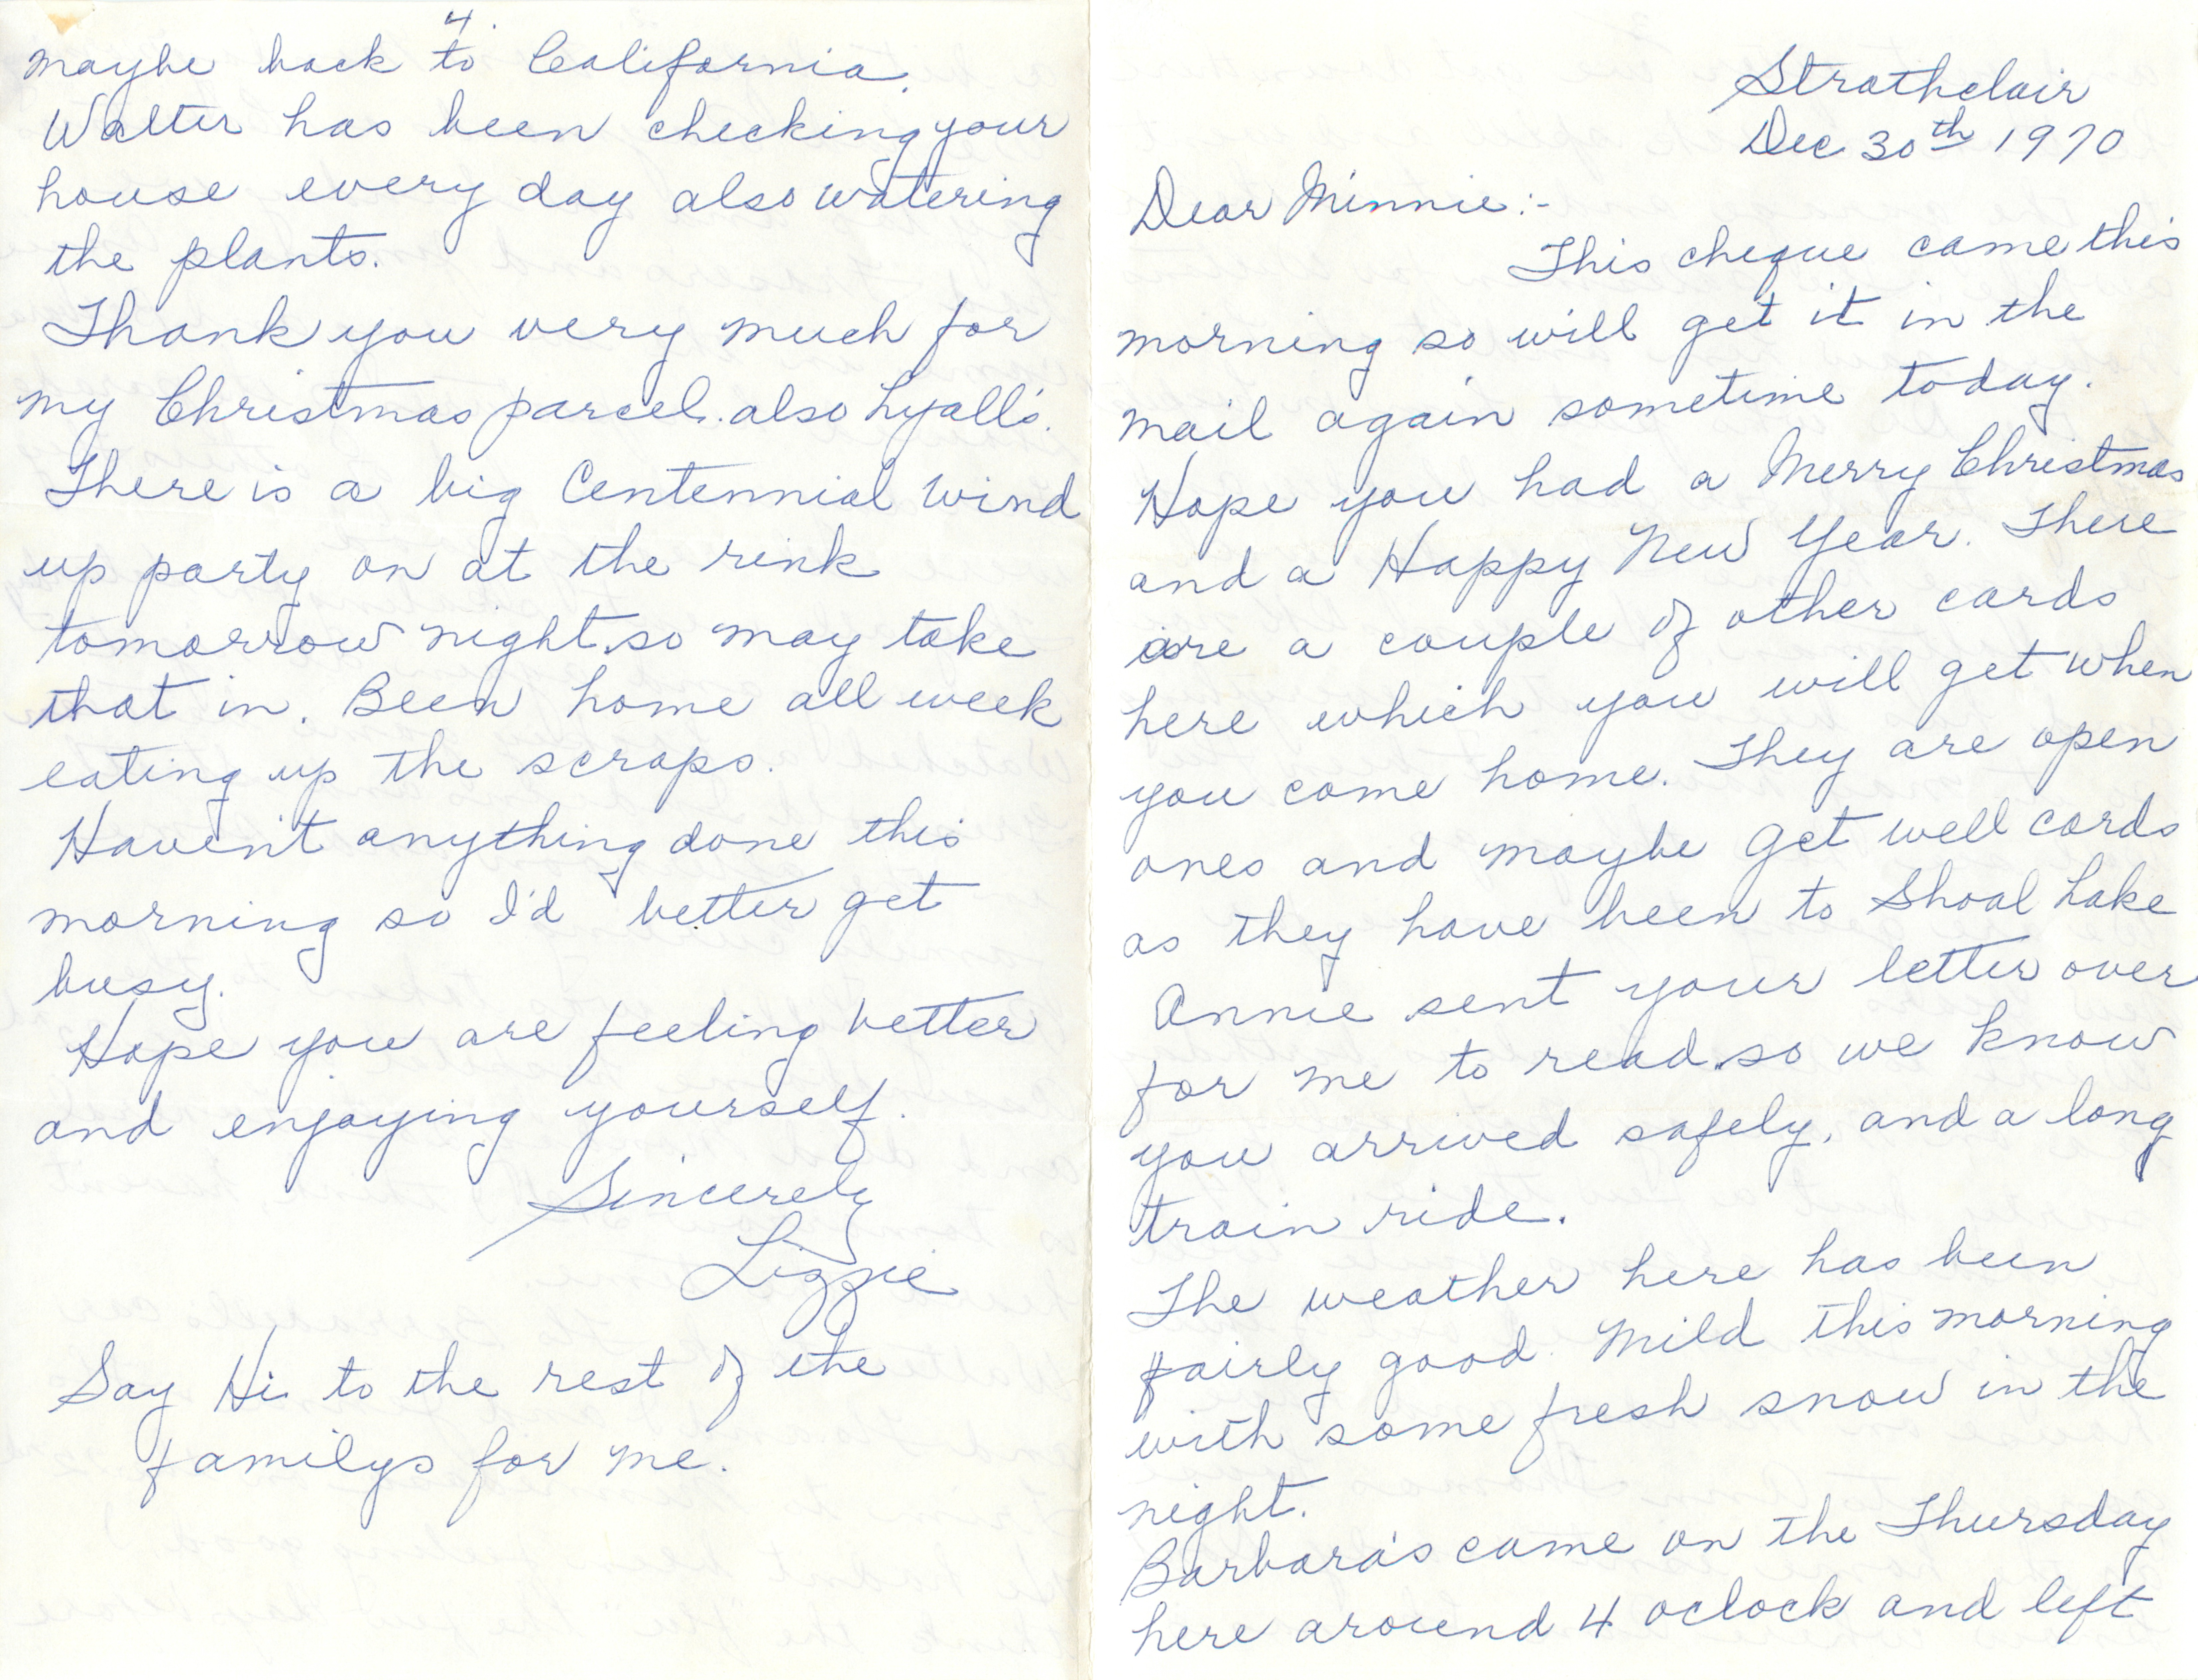 Strathclair
Dec 30th 1970
Dear Minnie:-
This cheque came this
morning so will get it in the
mail again sometime today.
Hope you had a Merry Christmas
and a Happy New Year. There
are a couple of other cards
here which you will get when
you come home. They are open
ones and maybe Get well cards
as they have been to Shoal Lake
Annie sent your letter over
for me to read so we know
you arrived safely, and a long
train ride.
The weather here has been
fairly good. Mild this morning
with some fresh snow in the
night.
Barbara's came on the Thursday
here around 4 oclock and left
4
maybe back to California.
Walter has been checking your
house every day also watering
the plants.
Thank you very much for
my Christmas parcel. also Lyall's.
There is a big Centennial Wind
up party on at the rink
tomorrow night. so may take
that in. Been home all week
eating up the scraps.
Haven't anything done this
morning so I'd better get
busy.
Hope you are feeling better
and enjoying yourself.
Sincerely
Lizzie
Say Hi to the rest of the
familys for me.